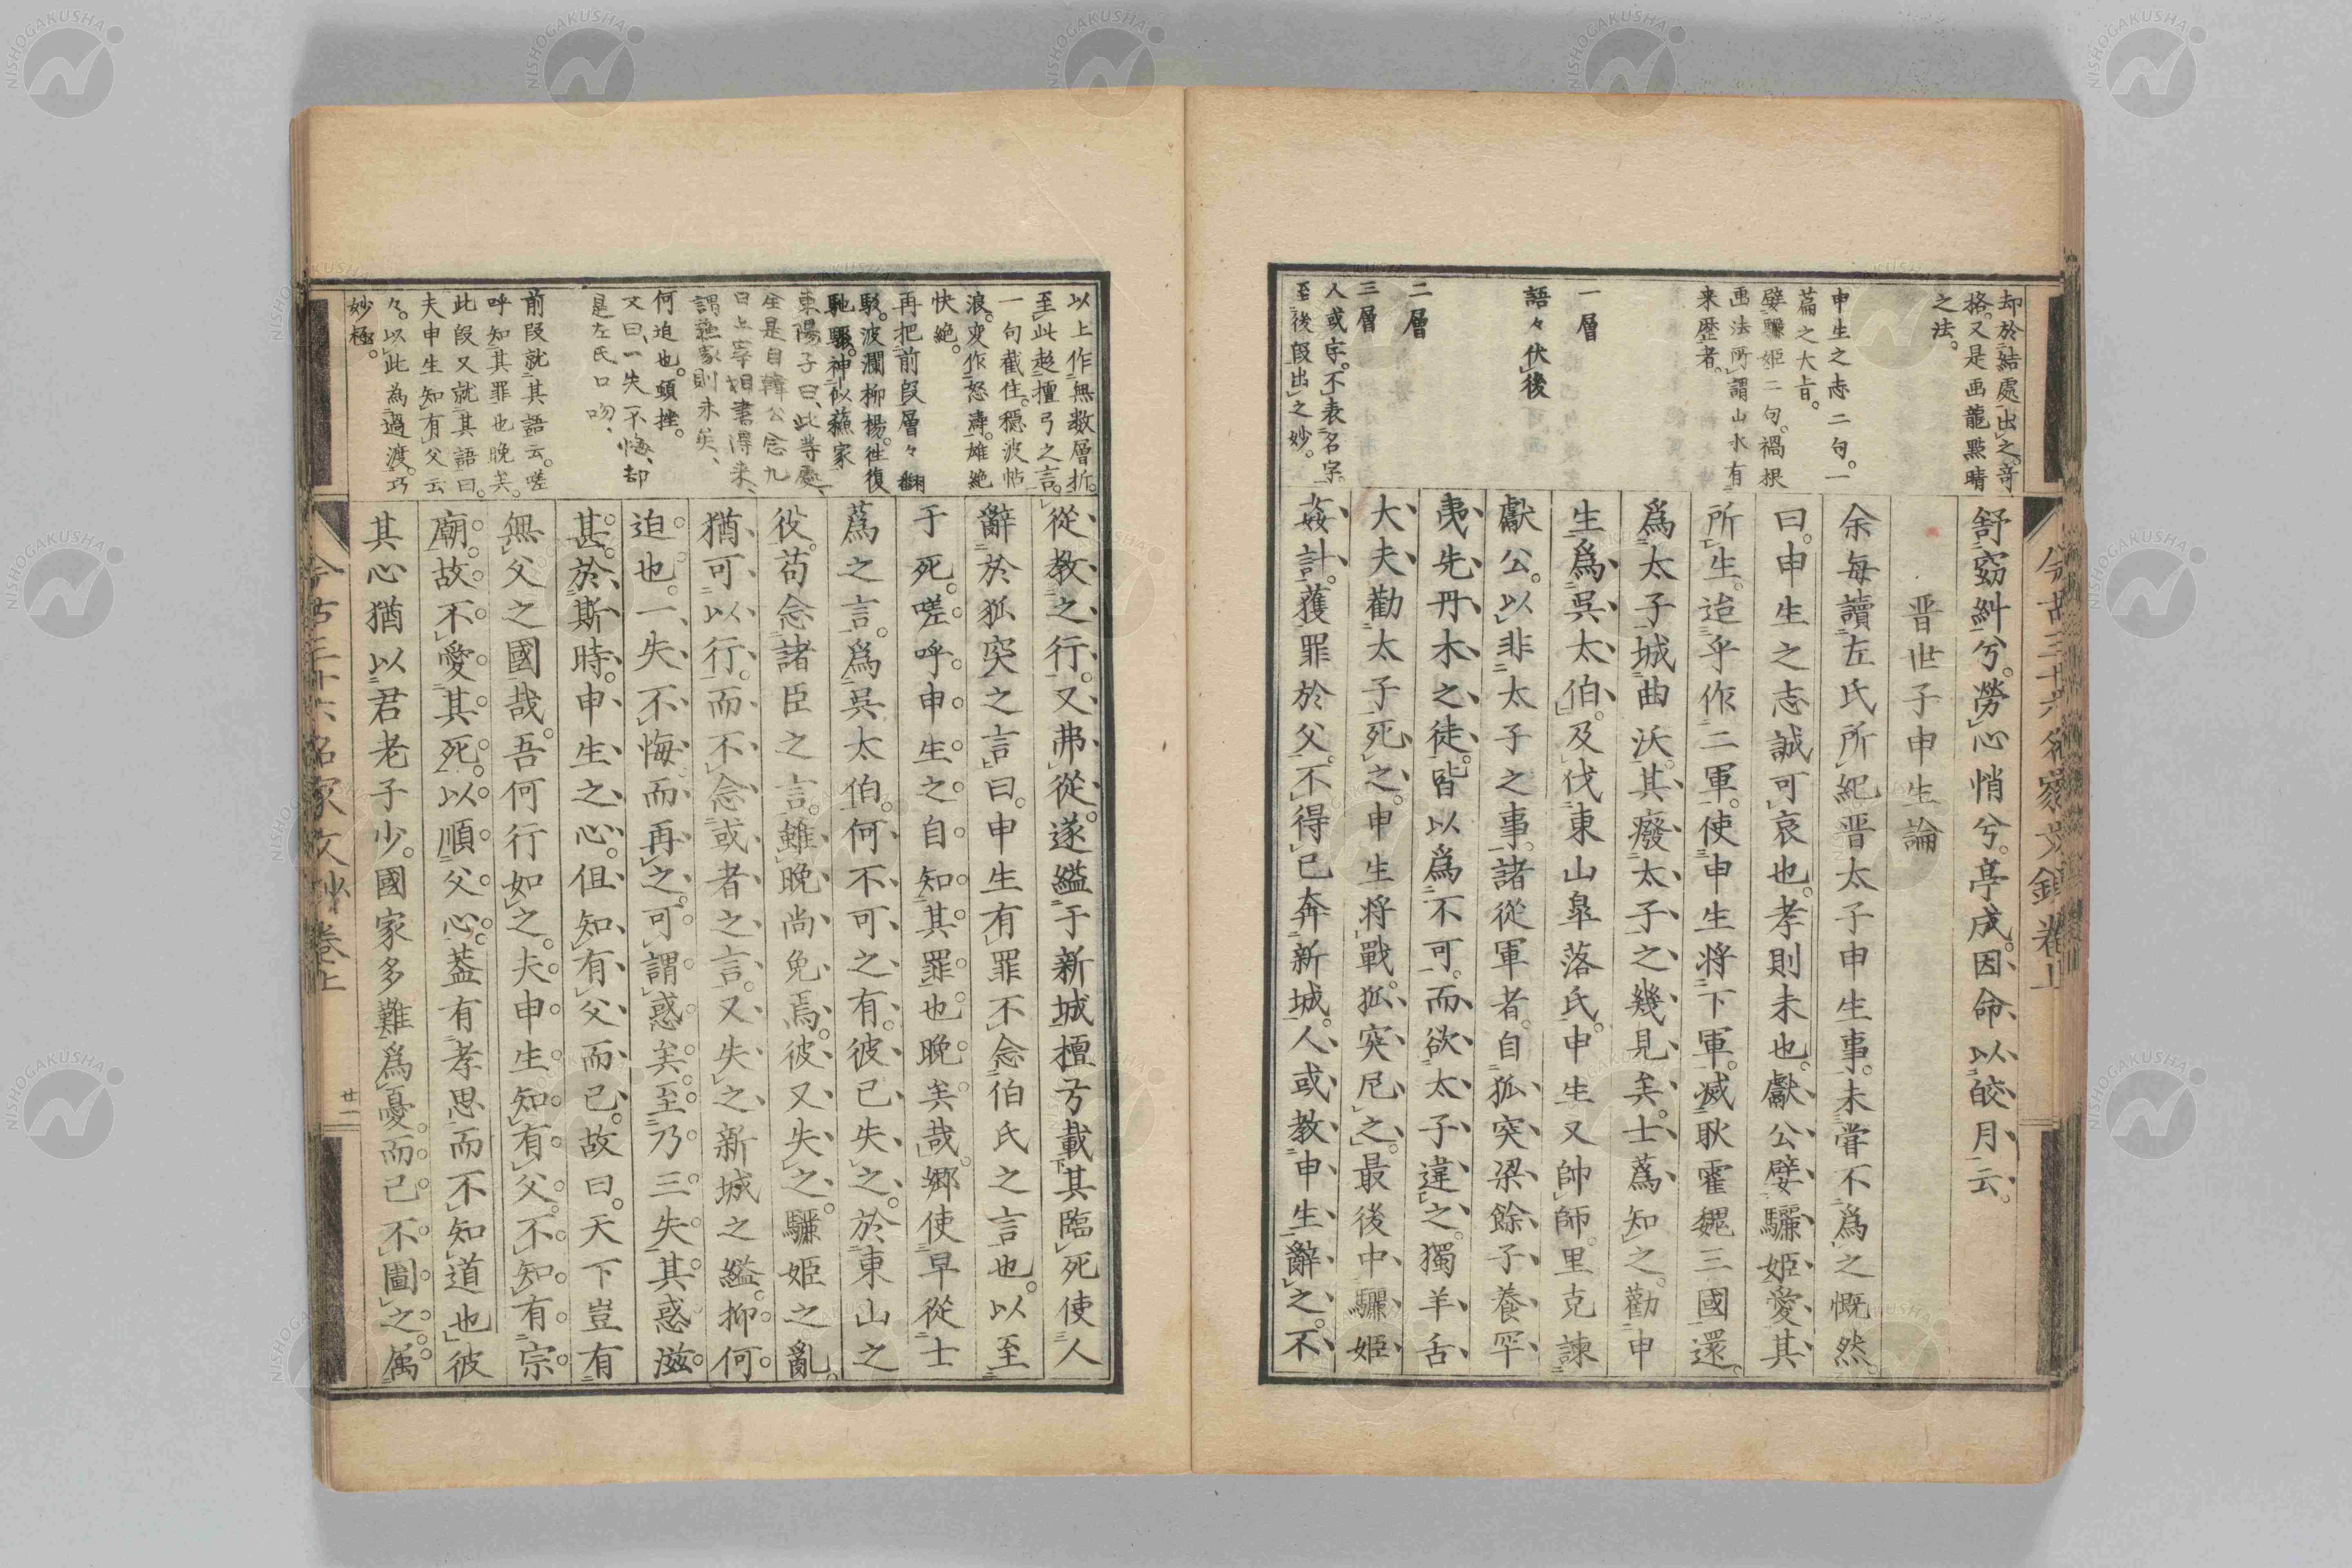 今古三十六名家文鈔卷上
却於結處出之奇
格又是画龍點睛
之法。
申生之志二句。一
篇之大旨。
嬖驪姫二句。禍根
画法所謂山水有
来歴者。
一層
語々伏後
二層
三層
人或字。不表名字。
至後段出之妙。
舒窈糾兮。勞心悄兮。亭成。因命以皎月云。
晋世子申生論
余毎讀左氏所紀晋太子申生事。未嘗不爲之慨然。
曰。申生之志誠可哀也。孝則未也。獻公嬖驪姫愛其
所生。迨乎作二軍。使申生将下軍。滅耿霍魏三國還。
爲太子城曲沃。其癈太子之幾見矣。士蔿知之。勸申
生爲呉太伯。及伐東山皐落氏。申生又帥師。里克諫
獻公。以非太子之事。諸從軍者。自狐突梁餘子養罕
夷先丹木之徒。皆以爲不可。而欲太子違之。獨羊舌
大夫勸太子死之。申生将戰。狐突尼之。最後中驪姫
姦計。獲罪於父。不得已奔新城。人或教申生辭之。不
以上作無数層折。
至此趂檀弓之言。
一句截住。穏波帖
浪。変作怒濤。雄絶
快絶。
再把前段層々翻
駁。波瀾柳楊。往復
馳驟。神似蘓家
東陽子曰、此等處、
全是自韓公念九
日上宰相書得来、
謂蘓家則未矣、
何迫也。頓挫。
又曰、一失不悔、却
是左氏口吻、
前段就其語云。嗟
呼知其罪也晩矣。
此段又就其語曰。
夫申生知有父云
々。以此為過渡。巧
妙極。
從教之行。又弗從。遂縊于新城檀弓載其臨死使人
辭於狐突之言曰。申生有罪不念伯氏之言也。以至
于死。嗟呼。申生之自知其罪也晩矣哉。郷使早從士
蔿之言。爲呉太伯。何不可之有。彼已失之。於東山之
役。苟念諸臣之言。雖晩尚免焉。彼又失之。驪姫之亂。
猶可以行。而不念或者之言。又失之新城之縊。抑何
迫也。一失不悔而再之。可謂惑矣。至乃三失其惑滋
甚。於斯時。申生之心。但知有父而已。故曰。天下豈有
無父之國哉。吾何行如之。夫申生知有父。不知有宗
廟。故不愛其死。以順父心。葢有孝思而不知道也彼
其心猶以君老子少。國家多難爲憂。而己不圖之。属
今古三十六名家文鈔卷上
廿二